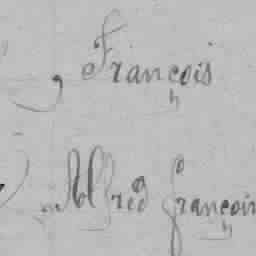 François
Alfred François